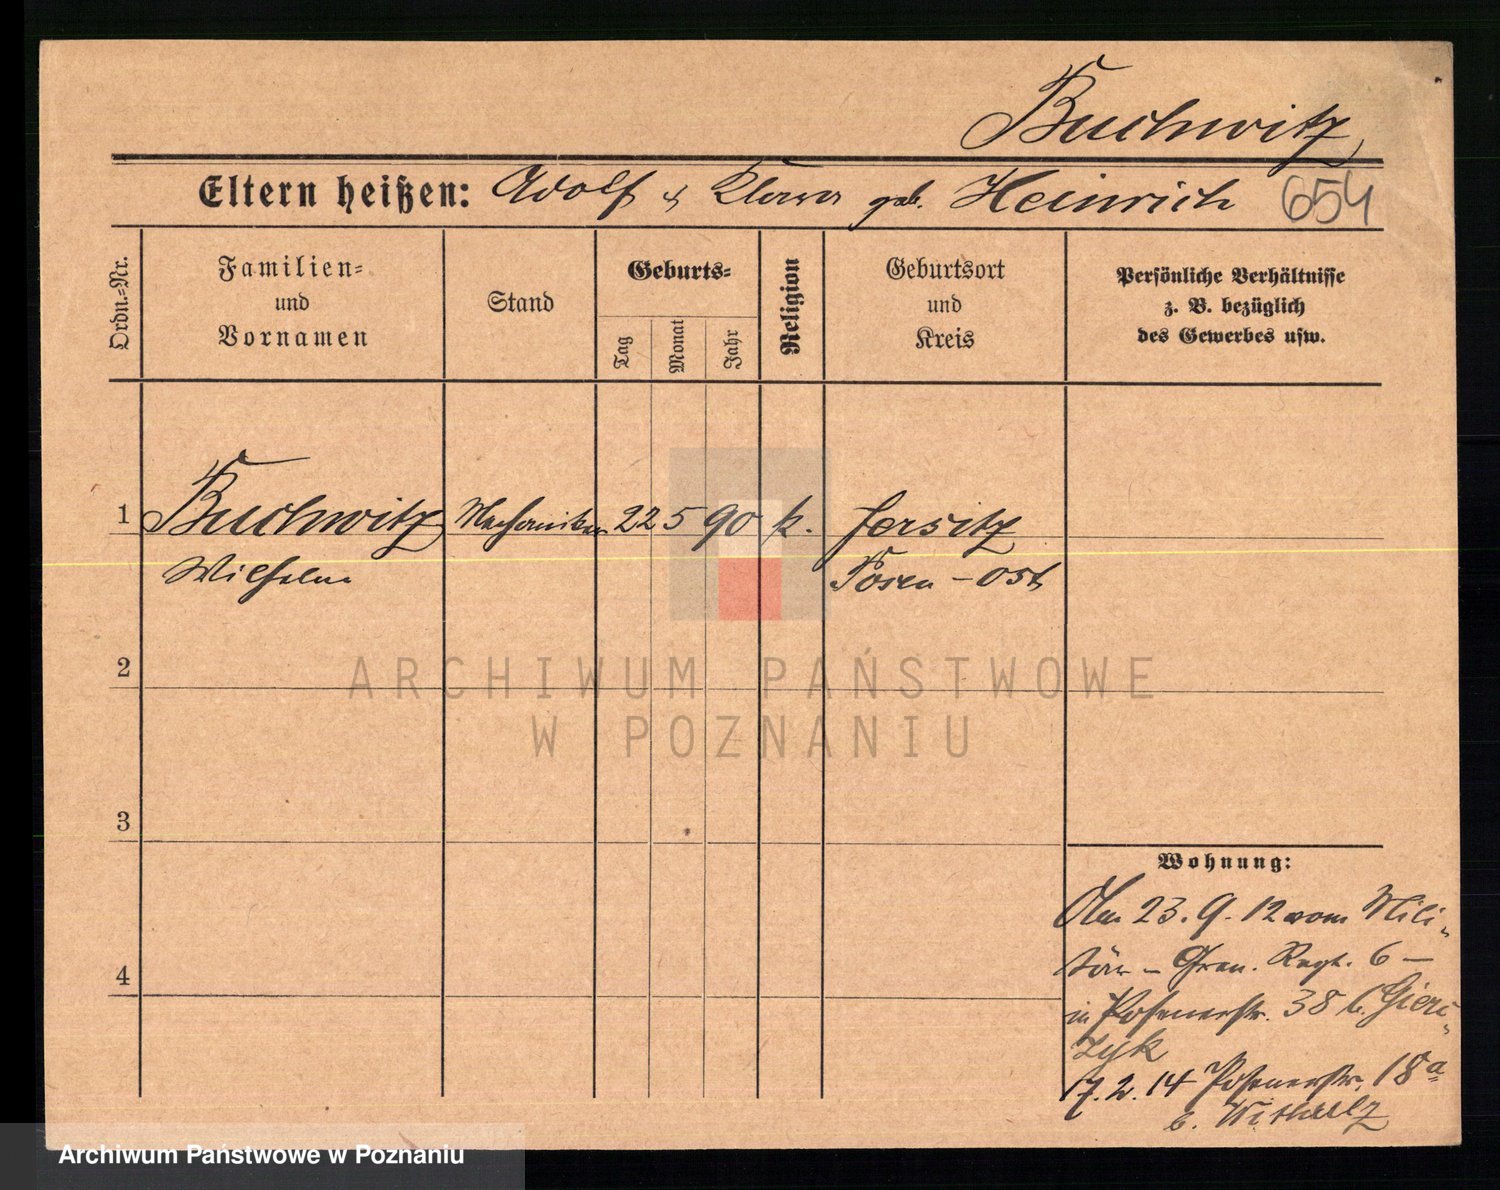 Buchwitz
Eltern heißen: Adolf & Klara geb. Heinrich 654
Ordn.-Nr.
Familien-
und
Vornamen
Stand
Geburts-
Tag
Monat
Jahr
Religion
Geburtsort
und
Kreis
Persönliche Verhältnisse
z. B. bezüglich
des Gewerbes usw.
1 Buchwitz Mechaniker 22 5 90 k. Jersitz
Wilhelm Posen-Ost
2
ARCHIWUM PAŃSTWOWE
W POZNANIU
3
Wohnung:
23. 9. 12 vom Mili-
tär – Gren. Regt. 6 –
in Posenerstr. 38 b. Gieri-
zyk
4
17. 2. 14 Posenerstr. 18a
b. Withulz
Archiwum Państwowe w Poznaniu